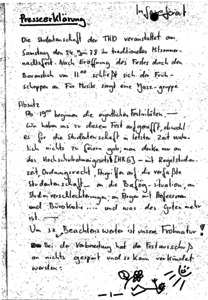 Infoferat
Presseerklärung
Die Studentenschaft der THD veranstaltet am
Samstag den 24.Juni 78 ihr traditionelles Mitsommer-
nachtsfest. Nach Eröffnung des Festes durch den
Bieranstich um 11⁰⁰ schließt sich der Früh-
schoppen an. Für Musik sorgt eine Jazz-gruppe.
Absatz
Ab 19⁰⁰ beginnen die eigentlichen Festivitäten.—
Wir haben uns zu diesem Fest aufgerafft, obwohl
es für die Studentenschaft in letzter Zeit wahr-
lich nichts zu feiern gab, man denke nur an
das Hochschulrahmengesetz [HRG] — mit Regelstudien-
zeit, Ordnungsrecht, Angriffen auf die verfaßte
Studentenschaft — an die Bafög-situation, an
Studienverschlechterungen, an Ärger mit Professoren
und Bürokratie.... und was des Guten mehr
ist. —
Um so Beachtenswerter ist unsere Frohnatur!
Bei der Vorbereitung hat der Festausschuß
an nichts gespart und so kann verkündet
werden: